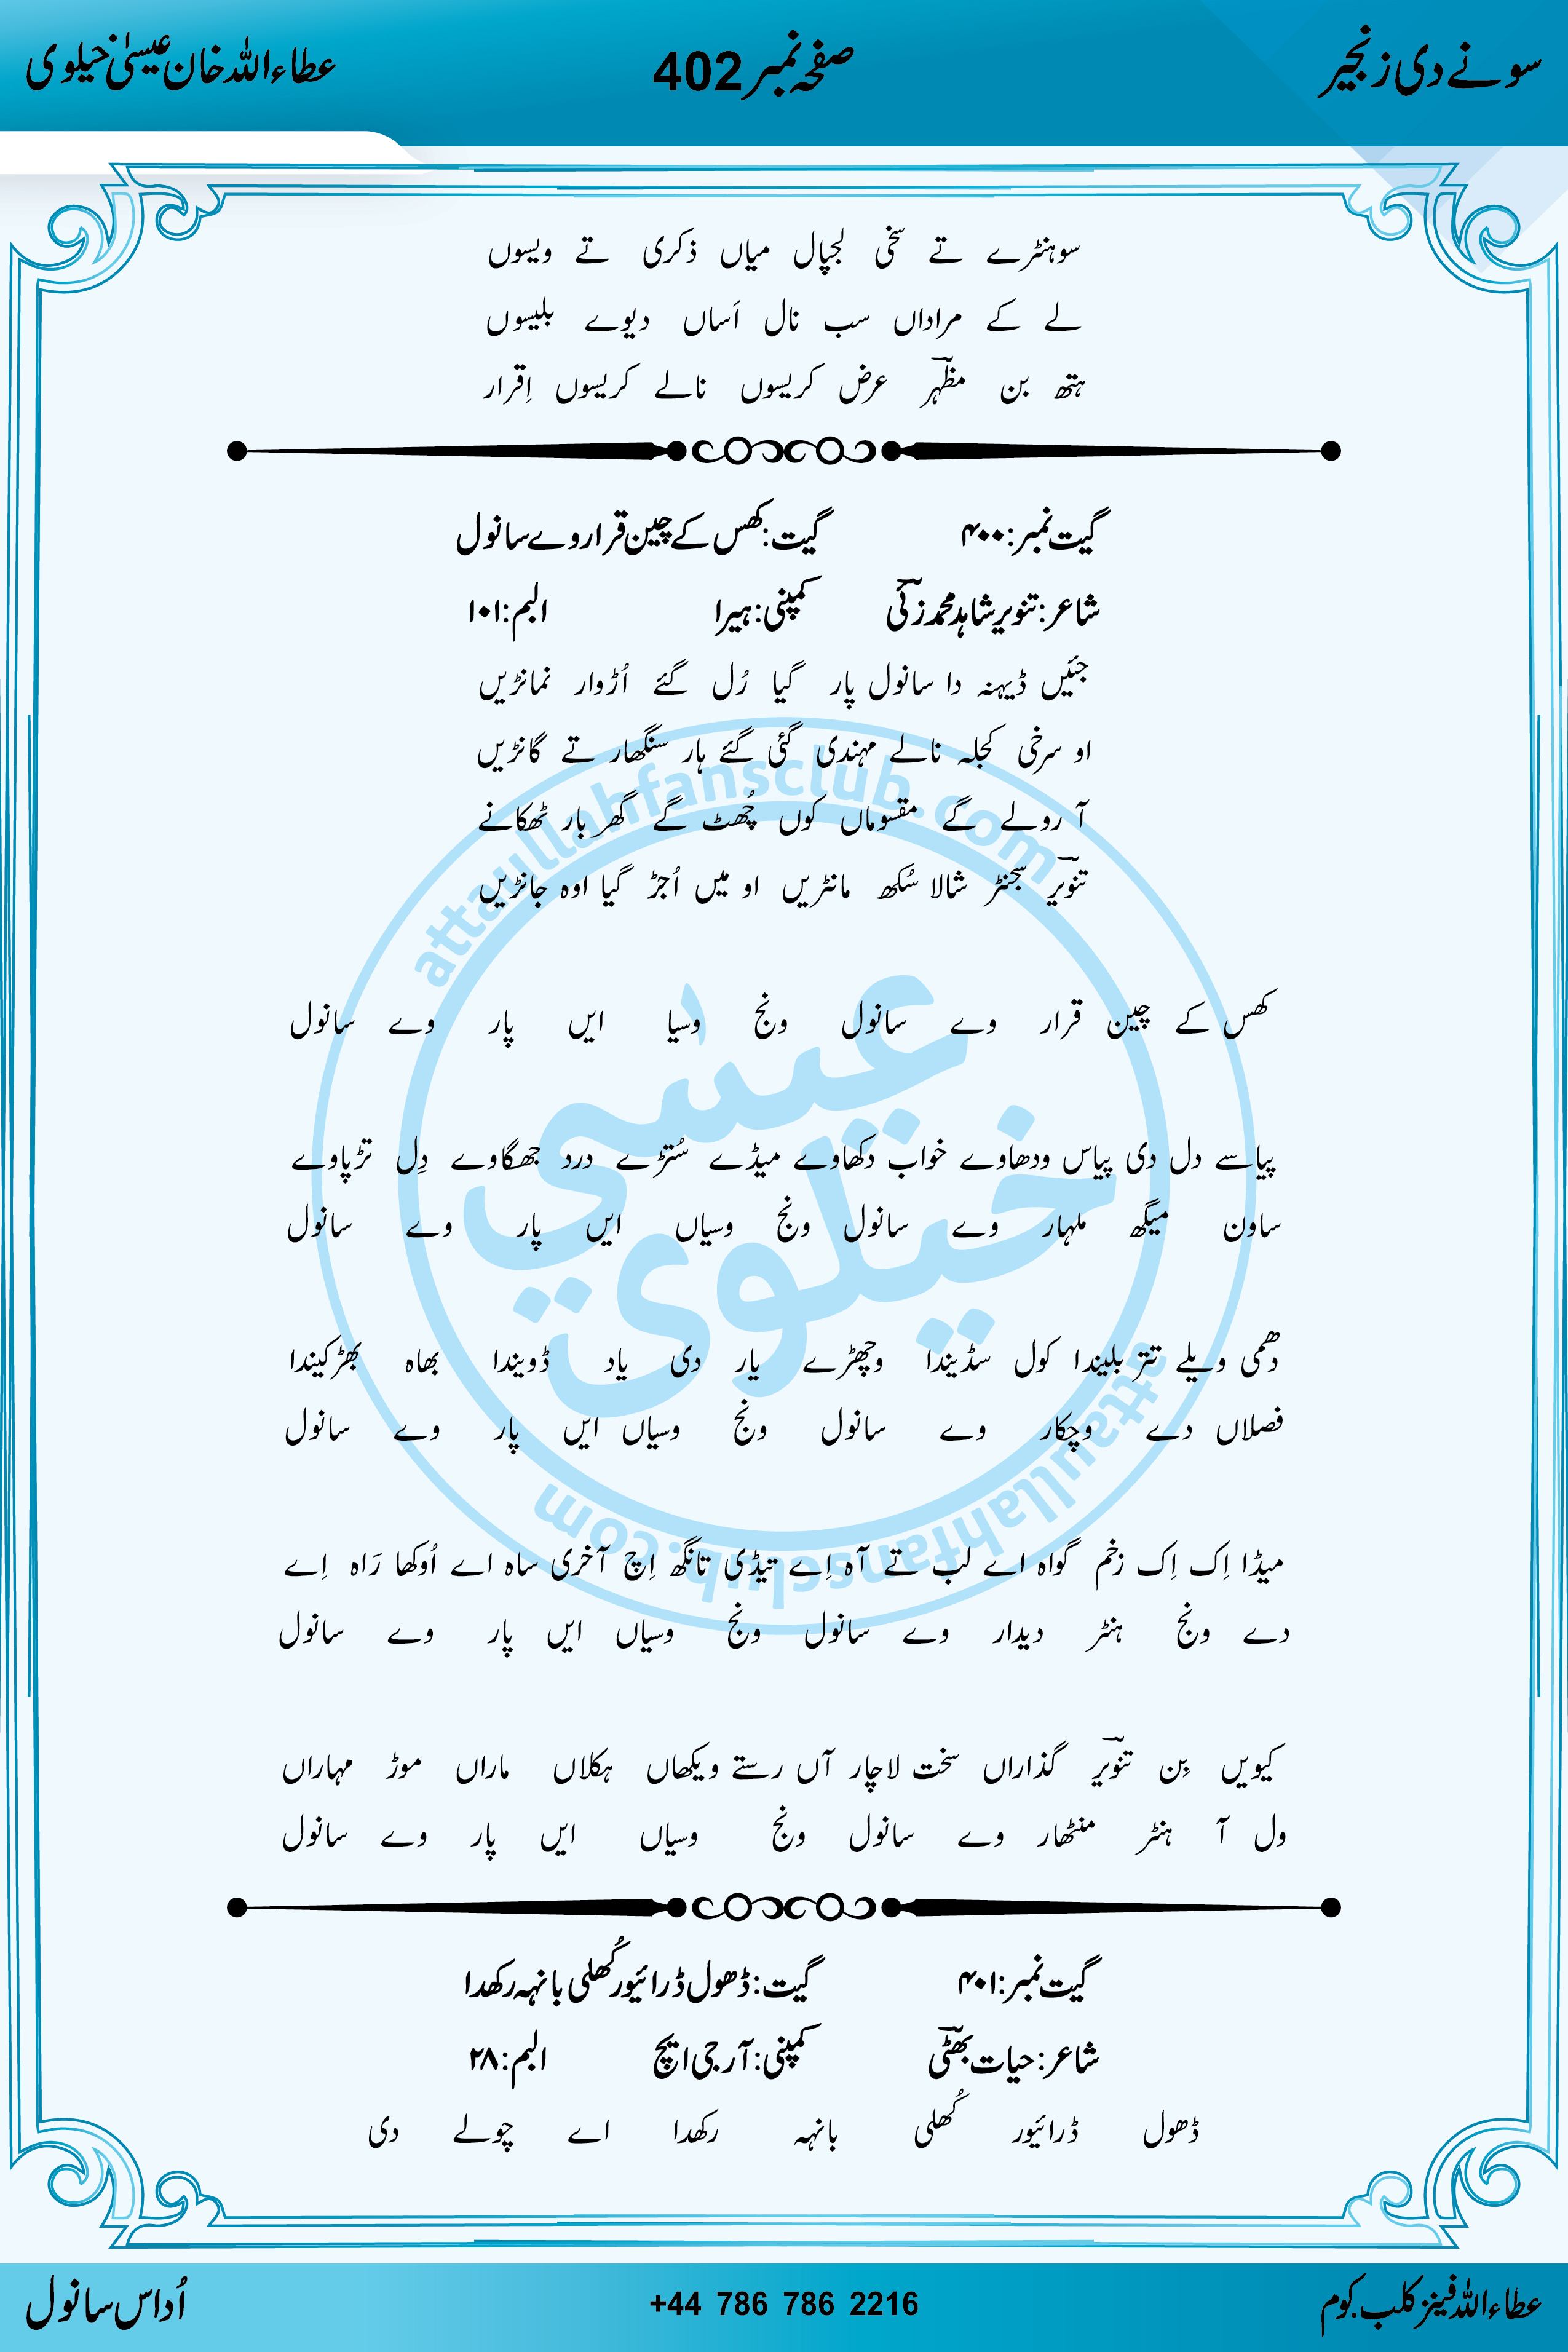 سونے دی زنجیر صفحہ نمبر 402 عطاء اللہ خان عیسیٰ خیلوی
سوہنٹرے تے سخی لجپال میاں ذکری تے ویسوں
لے کے مراداں سب نال اَساں دیوے بلیسوں
ہتھ بن مظہرؔ عرض کریسوں نالے کریسوں اِقرار
گیت نمبر: ۴۰۰ گیت: کھس کے چین قرار وے سانول
شاعر: تنویر شاہد محمد زئیؔ کمپنی: ہیرا البم: ۱۰۱
جئیں ڈیہنہ دا سانول پار گیا رُل گئے اُڑوار نمانڑیں
او سرخی کجلہ نالے مہندی گئی گئے ہار سنگھار تے گانڑیں
آ رولے گے مقسوماں کوں چُھٹ گے گھر بار ٹھکانے
تنویرؔ سجنٹر شالا سُکھ مانٹریں او میں اُجڑ گیا اوہ جانڑیں
کھس کے چین قرار وے سانول ونج وسیا ایں پار وے سانول
پیاسے دل دی پیاس ودھاوے خواب دکھاوے میڈے سُتڑے درد جھگاوے دِل تڑپاوے
ساون میگھ ملہار وے سانول ونج وسیاں ایں پار وے سانول
دھمی ویلے تتر بلیندا کول سڈیندا وچھڑے یار دی یاد ڈویندا بھاہ بھڑکیندا
فصلاں دے وچکار وے سانول ونج وسیاں ایں پار وے سانول
میڈا اِک اِک زخم گواہ اے لب تے آہ اِے تیڈی تانگھ اِچ آخری ساہ اے اُوکھا رَاہ اِے
دے ونج ہنٹر دیدار وے سانول ونج وسیاں ایں پار وے سانول
کیویں بِن تنویرؔ گذاراں سخت لاچار آں رستے ویکھاں ہکلاں ماراں موڑ مہاراں
ول آ ہنٹر منٹھار وے سانول ونج وسیاں ایں پار وے سانول
گیت نمبر: ۴۰۱ گیت: ڈھول ڈرائیور کُھلی بانہہ رکھدا
شاعر: حیات بھٹیؔ کمپنی: آر جی ایچ البم: ۲۸
ڈھول ڈرائیور کُھلی بانہہ رکھدا اے چولے دی
عطاء اللہ فینز کلب.کوم +44 786 786 2216 اُداس سانول
attaullahfansclub.com
عیسٰی
خیلوی
attaullahfansclub.com